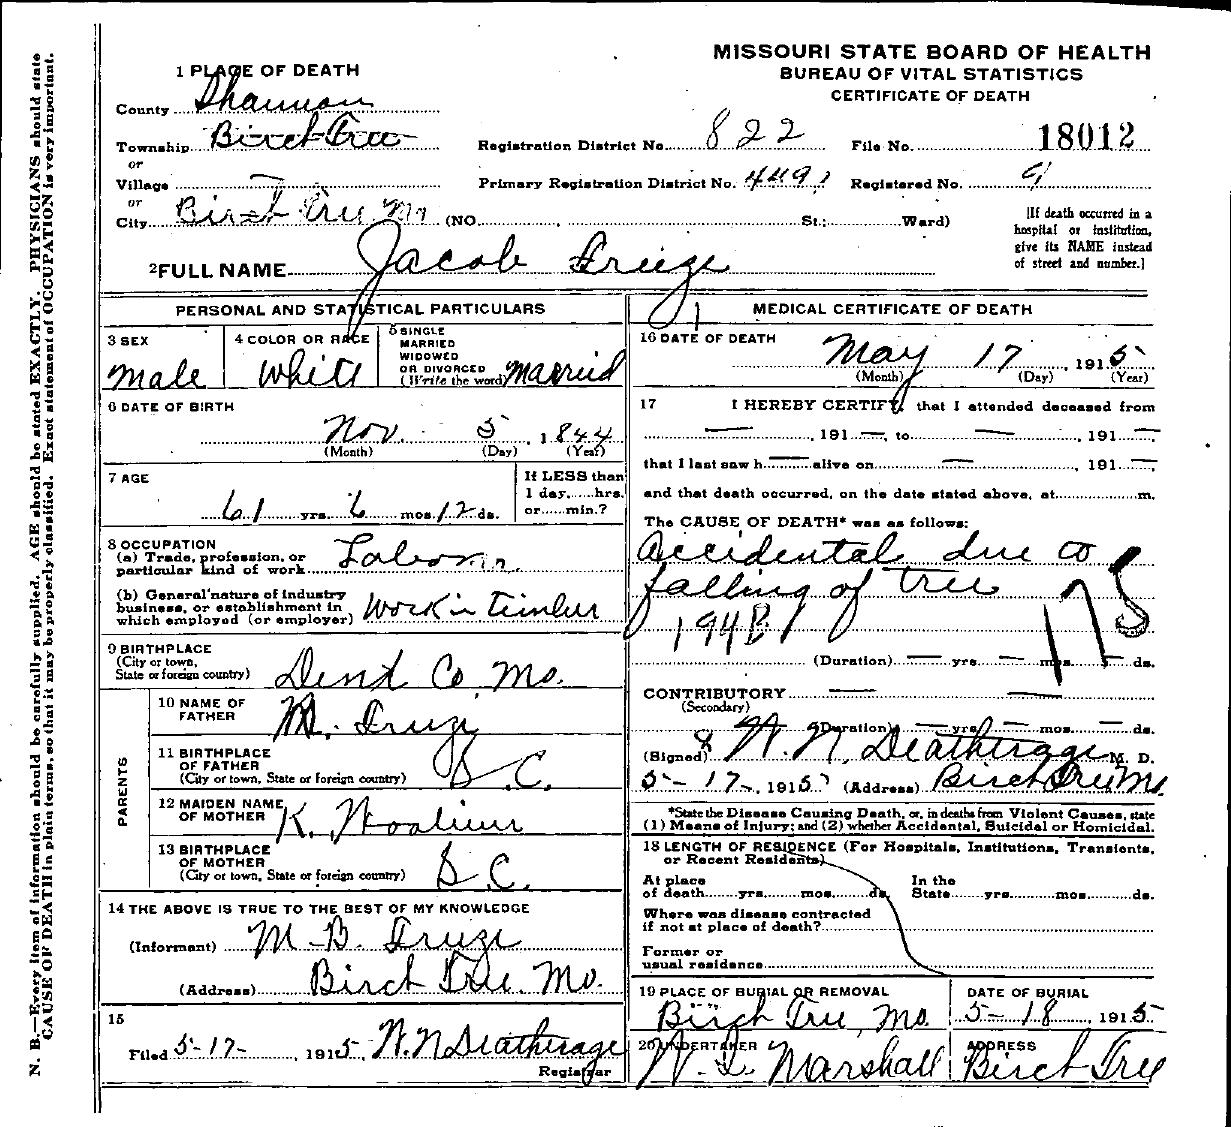 MISSOURI STATE BOARD OF HEALTH
BUREAU OF VITAL STATISTICS
CERTIFICATE OF DEATH
1 PLACE OF DEATH
County Shannon
Township Birch Tree
or
Village
or
City Birch Tree Mo (NO. St.; Ward)
Registration District No. 822
File No. 18012
Primary Registration District No. 4491
Registered No. 9
[If death occurred in a
hospital or institution,
give its NAME instead
of street and number.]
2 FULL NAME Jacob
PERSONAL AND STATISTICAL PARTICULARS
3 SEX
Male
4 COLOR OR RACE
White
5 SINGLE
MARRIED
WIDOWED
OR DIVORCED
(Write the word) Married
6 DATE OF BIRTH
Nov. 5, 1844
(Month) (Day) (Year)
7 AGE
61 yrs. 6 mos. 12 ds.
If LESS than
1 day, hrs.
or min.?
8 OCCUPATION
(a) Trade, profession, or
particular kind of work Laborer
(b) General nature of industry
business, or establishment in
which employed (or employer) Work in timber
9 BIRTHPLACE
(City or town,
State or foreign country) Dent Co, Mo.
PARENTS
10 NAME OF
FATHER M.
11 BIRTHPLACE
OF FATHER
(City or town, State or foreign country) S.C.
12 MAIDEN NAME
OF MOTHER K.
13 BIRTHPLACE
OF MOTHER
(City or town, State or foreign country) S.C.
14 THE ABOVE IS TRUE TO THE BEST OF MY KNOWLEDGE
(Informant) M B.
(Address) Birch Tree, Mo.
15
Filed 5-17-, 1915, N. N Deatherage
Registrar
MEDICAL CERTIFICATE OF DEATH
16 DATE OF DEATH
May 17, 1915
(Month) (Day) (Year)
17 I HEREBY CERTIFY, that I attended deceased from
—, 191—, to —, 191—,
that I last saw h— alive on —, 191—,
and that death occurred, on the date stated above, at m.
The CAUSE OF DEATH* was as follows:
Accidental due to
falling of tree
194B 175
(Duration) — yrs. — mos. — ds.
CONTRIBUTORY —
(Secondary)
(Duration) — yrs. — mos. — ds.
(Signed) N. N. Deatherage M. D.
5-17-, 1915 (Address) Birch Tree Mo
*State the Disease Causing Death, or, in deaths from Violent Causes, state
(1) Means of Injury; and (2) whether Accidental, Suicidal or Homicidal.
18 LENGTH OF RESIDENCE (For Hospitals, Institutions, Transients,
or Recent Residents)
At place
of death yrs. mos. ds.
In the
State yrs. mos. ds.
Where was disease contracted
if not at place of death?
Former or
usual residence
19 PLACE OF BURIAL OR REMOVAL
Birch Tree, Mo.
DATE OF BURIAL
5-18, 1915
20 UNDERTAKER
Marshall
ADDRESS
Birch Tree
N. B.—Every item of information should be carefully supplied. AGE should be stated EXACTLY. PHYSICIANS should state
CAUSE OF DEATH in plain terms, so that it may be properly classified. Exact statement of OCCUPATION is very important.